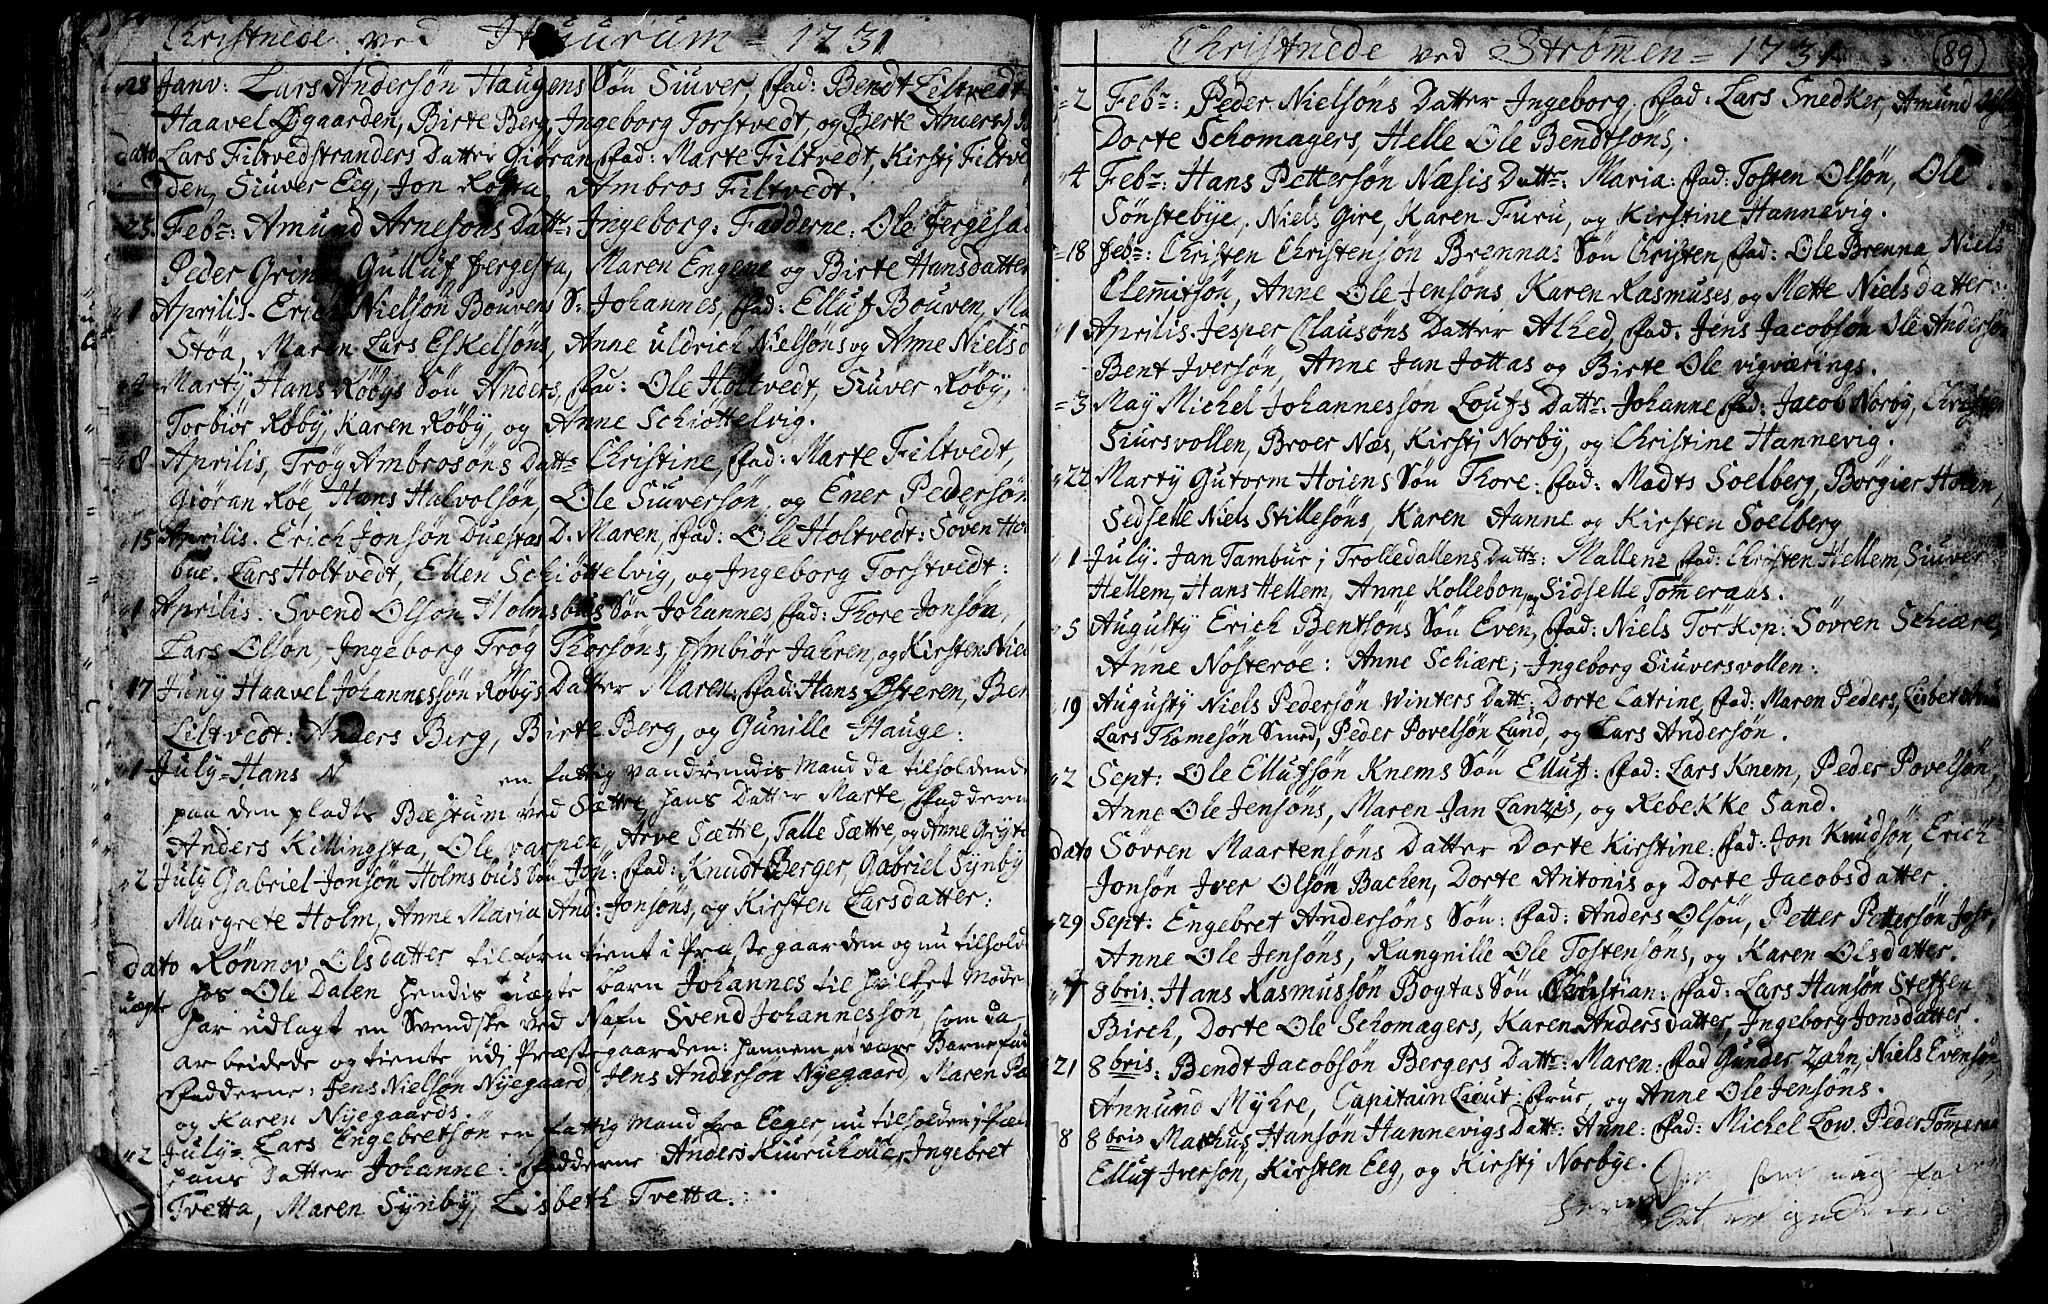 Christnede ved Hurum = 1731
28 Janv: Lars Andersøn Haugens Søn Siuver, Fad: Bendt Liltvedt
Haavel Øgaarden, Birte Berg, Ingeborg Torstvedt, og Berte
dato Lars Filtvedstranders Datter Giøran Fad: Marte Filtvedt, Kirsti Filtve
den, Siuver Eeg, Jon Ambros Filtvedt.
25 Febr: Amund Arnesøns Datt: Ingeborg: Fadderne: Ole
Peder Grin Gulluf Bergesta, Maren Engene og Birte Hansdatter
1 Aprilis. Erich Nielsøn Bouvens S: Johannes, Fad: Elluf Bouven, Ma
Støa, Maren Lars Eskelsøns, Anne Uldrich Nielsøns og Anne Niels d
4 Marty, Hans Røbys Søn Anders, Fad: Ole Holtvedt, Siuver Røby,
Torbiør Røby, Karen Røby, og Anne Schiøttelvig.
8 Aprilis, Trøg Ambrosøns Datt: Christine, Fad: Marte Filtvedt,
Giøran Røe, Hans Halvolsøn, Ole Siuversøn, og Ener Pedersøn
15 Aprilis. Erich Jonsøn Duestas D: Maren, Fad: Ole Holtvedt: Søven Hol
bue. Lars Holtvedt, Ellen Schiøttelvig, og Ingeborg Torstvedt:
1 Aprilis. Svend Olsøn Holmsbus Søn Johannes, Fad: Thore Jonsøn,
Lars Olsøn, Ingeborg Trøg Thorsøns, Ambiør Jahren, og Kirsten Niel
17 Juny Haavel Johannessøn Røbys Datter Maren: Fad: Hans Østeren, Ben
Liltvedt: Anders Berg, Birte Berg, og Gunille Hauge:
1 July = Hans N en fattig vandrendis Mand da tilholdende
paa den pladts Bæstum ved Sættre hans Datter Marte, Faddern
Anders Killingsta, Ole varpen, Arve Sættre, Talle Sættre, og Anne Grøt
2 July Gabriel Jonsøn Holmsbus Søn Jon: Fad: Knudt Berger, Gabriel Synby
Margrete Holm, Anne Maria And: Jonsøns, og Kirsten Larsdatter:
dato Rønnov Olsdatter tilforn tient i Præstegaarden og nu tilhold
uægte hos Ole Dalen hendis uægte barn Johannes til hvilket Mode
har udlagt en Svendske ved Nafn Svend Johannessøn, som da
arbeidede og tiente udi Præstegaarden: hannem at være Barnefad
Fadderne: Jens Nielsøn Nyegaard, Jens Andersøn Nyegaard, Maren
og Karen Nyegaards.
2 July = Lars Engebretsøn en fattig Mand fra Eeger, nu tilholden i
hans Datter Johanne: Fadderne Anders Ingebret
Tvetta, Maren Synby, Lisbeth Tvetta.
Christnede ved Strømen = 1731 89
2 Febr: Peder Nielsøns Datter Ingeborg, Fad: Lars Snedker, Amund
Dorte Schomagers, Helle Ole Bendtsøns.
4 Febr: Hans Pettersøn Næsis Datt: Maria: Fad: Tosten Olsøn, Ole
Sønstebye, Niels Gire, Karen Furu, og Kirstine Hannevig.
18 Febr: Christen Christensøn Brennas Søn Christen, Fad: Ole Brenna, Niels
Clemitsøn, Anne Ole Jensøns Karen Rasmuses og Mette Nielsdatter:
1 Aprilis. Jesper Clausøns Datter Alhed, Fad: Jens Jacobsøn Ole Andersøn
Bent Iversøn, Anne Jan Jottas og Birte Ole vigværings.
3 May Michel Johannessøn Loufs Datt: Johanne Fad: Jacob Norby,
Siursvollen, Broer Næs, Kirsti Norby, og Christine Hannevig.
22 Marty Gutorm Hoiens Søn Thore: Fad: Madts Soelberg, Børgier Holen,
Sedselle Niels Stillesøns, Karen Hanne og Kirsten Soelberg
1 July. Jan Tambur i Trolledallens Datt: Mallene Fad: Christen Hellem, Siuver
Hellem, Hans Hellem, Anne Kollebon, og Sidselle Tømeraas.
5 Augusty Erich Bentsøns Søn Even, Fad: Niels Tørkop: Søvren Schiære,
Anne Nøsterøe: Anne Schiære; Ingeborg Siuversvollen:
19 Augusty Niels Pedersøn Winters Datt: Dorte Catrine, Fad: Maren Peders, Lisbet
Lars Thomesøn Smed, Peder Povelsøn Lund, og Lars Andersøn.
2 Sept: Ole Ellufsøn Knems Søn Elluf: Fad: Lars Knem, Peder Povelsøn,
Anne Ole Jensøns, Maren Jan Lanzes, og Rebekke Sand.
dato Søvren Maartensøns Datter Dorte Kirstine: Fad: Jon Knudsøn, Erich
Jonsøn Iver Olsøn Bachen, Dorte Antonis og Dorte Jacobsdatter.
29 Sept: Engebret Andersøns Søn: Fad: Anders Olsøn, Petter Pettersøn
Anne Ole Jensøns, Rungnille Ole Tostensøns, og Karen Olsdatter.
7 8bris. Hans Rasmussøn Bogtas Søn Christian: Fad: Lars Hansøn Steffen
Birch, Dorte Ole Schomagers, Karen Andersdatter, Ingeborg Jonsdatter.
21 8bris: Bendt Jacobsøn Bergers Datt: Maren: Fad Gunder Zahn, Niels Evensøn,
Annund Myhre, Capitain Lieut: Frue, og Anne Ole Jensøns.
8 8bris Mathus Hansøn Hannevigs Datt: Anne: Fad: Michel Low. Peder Tømeraas
Elluf Iversøn, Kirsten Eeg, og Kirsti Norbye.